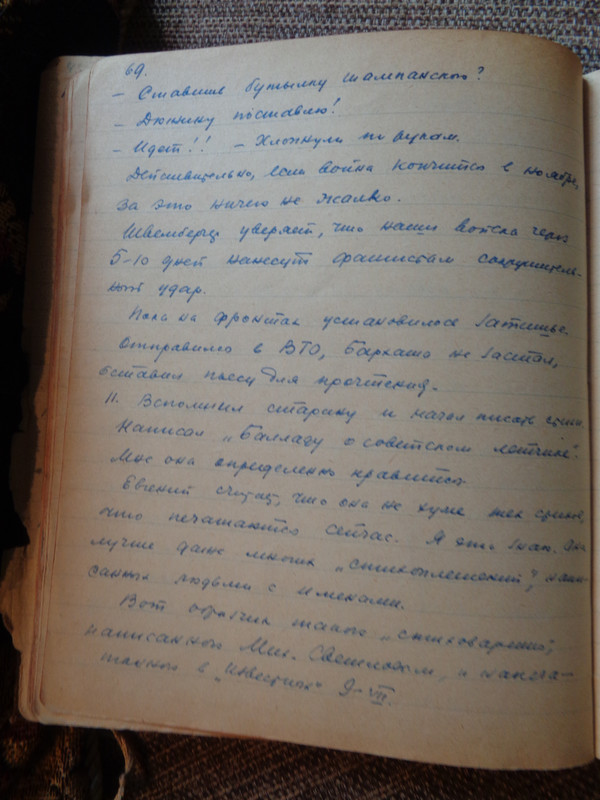 69.
– Ставишь бутылку шампанского?
– Дюжину поставлю!
– Идет!! – Хлопнули по рукам.
Действительно, если война кончится в ноябре,
за это ничего не жалко.
Швемберг уверяет, что наши войска через
5–10 дней нанесут фашистам сокрушитель-
ный удар.
Пока на фронтах установилось затишье.
Отправился в ВТО, Баркаша не застал,
оставил пьесу для прочтения.
11. Вспомнил старину и начал писать стихи.
Написал „Балладу о советском летчике“.
Мне она определенно нравится
Евгений считает, что она не хуже тех стихов,
что печатаются сейчас. Я это знаю. Она
лучше даже многих „стихоплетений“, напи-
санных людьми с именами.
Вот образчик такого „стихотварения“,
написанного Мих. Светловым, и напеча-
танного в „Известиях“ 9–VII.